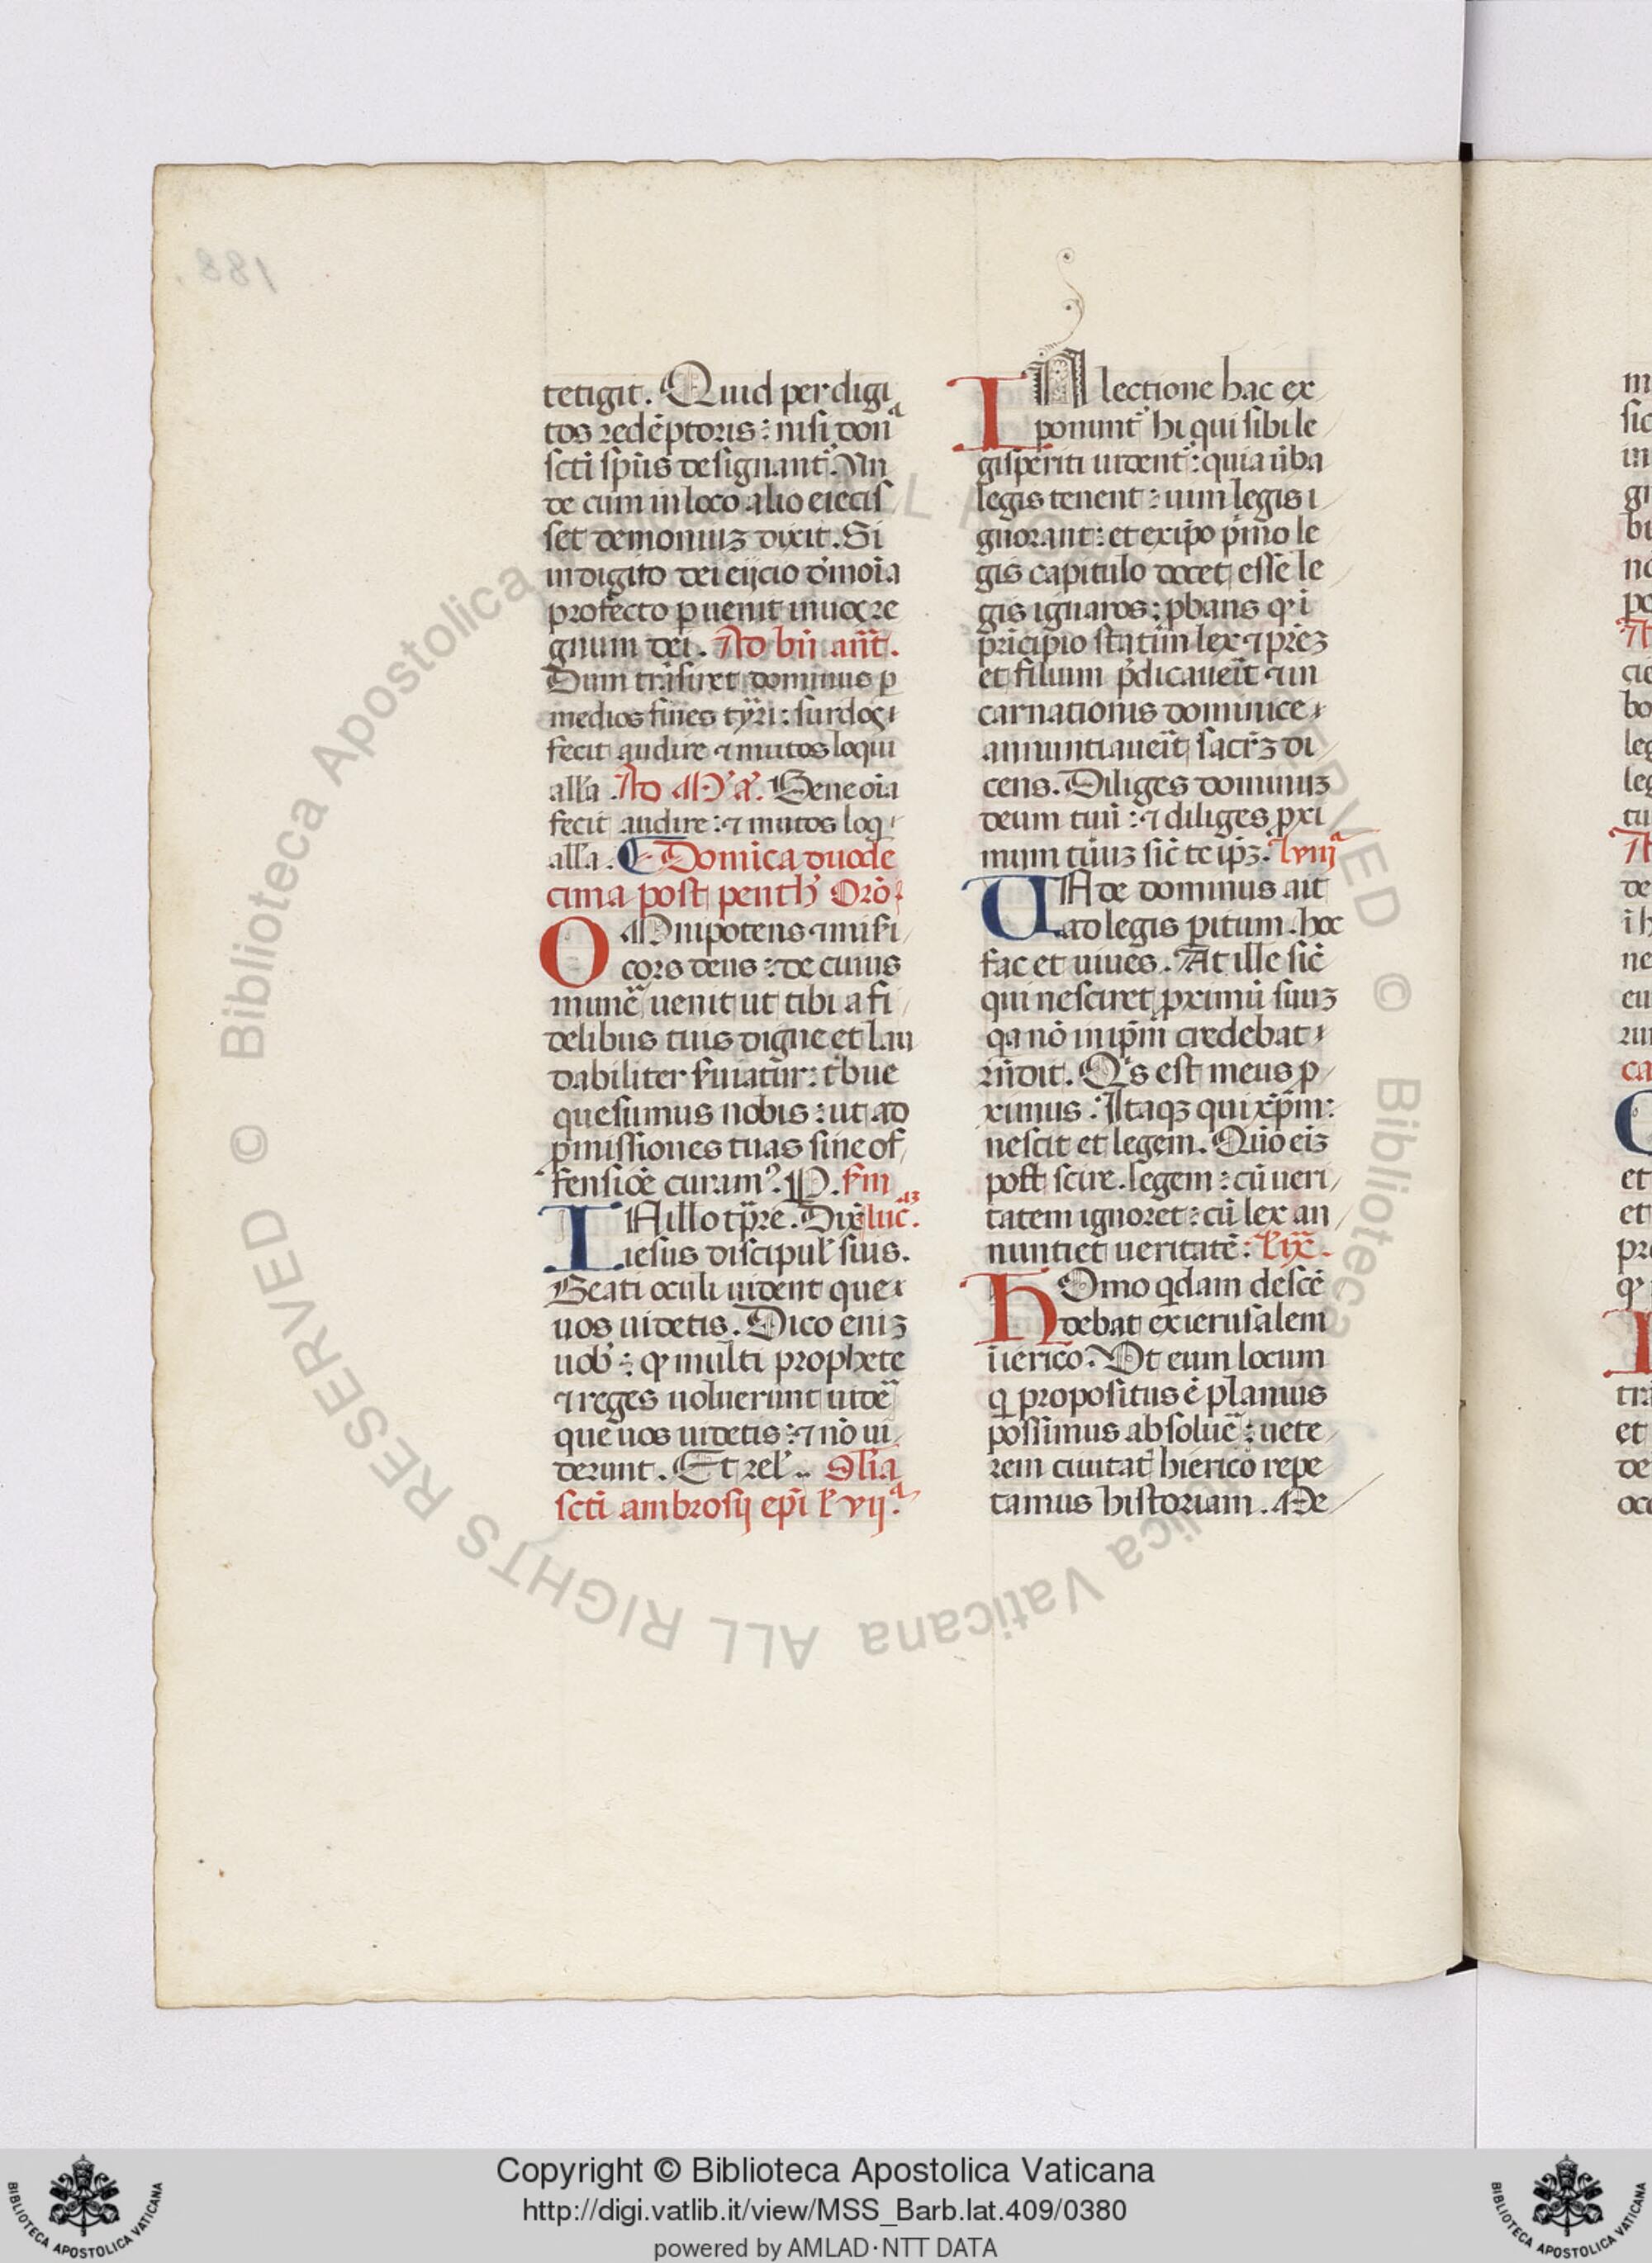 188
tetigit. Quid per digi
tos redēptoris : nisi dona
scti spūs designant᷑. Vn
de cum in loco alio eiecis
set demoniuꝫ dixit. Si
in digito dei eijcio dēmoīa
profecto ꝑuenit in uoꝫ re
gnum dei. Ad bn̄ an̄t.
Dum trāsiret dominus ꝑ
medios fines tyri : surdos
fecit audire ⁊ mutos loqui
all'a. Ad M'a'. Bene oīa
fecit audire : ⁊ mutos loq'
all'a. Domīca duode
cima post penth' Orō
OMnipotens ⁊ miſi
cors deus : de cuius
munē uenit ut tibi a fi
delibus tuis digne et lau
dabiliter ſuiatur : t'bue
quesumus nobis : ut ad
ꝓmissiones tuas sine of
fensiōe curam᷒. P. ſm
IN illo tp̄re. Dix̄ luc̄.
iesus discipul' suis.
Beati oculi uident que
uos uidetis. Dico eniꝫ
uob' : qꝫ multi prophete
⁊ reges uoluerunt uidē
que uos uidetis : ⁊ nō ui
derunt. Et rel'.. Oꝰlia
scti ambrosij ep̄i l'vijᵃ.
IN lectione hac ex
ponunt᷑ hi qui sibi le
gisperiti uident᷑ : quia ūba
legis tenent : uim legis i
gnorant : et ex ip̄o p'mo le
gis capitulo docet esse le
gis ignaros : ꝓbans qꝫ i
prīcipio statim lex ⁊ prēꝫ
et filium p̄dicauerit ⁊ in
carnationis dominice
annuntiauerit sacr̄ꝫ di
cens. Diliges dominuꝫ
deum tuū : ⁊ diliges ꝓxi
mum tuuꝫ sic̄ te ip̄ꝫ. lviijᵃ
UNde dominus ait
ad legis ꝑitum. hoc
fac et uiues. At ille sic̄
qui nesciret ꝓximū suuꝫ
qa nō in xp̄m credebat
rn̄dit. Qⁱs est meus ꝓ
ximus. Itaqꝫ qui xp̄m :
nescit et legem. Quō eīꝫ
pōt scire legem : cū ueri
tatem ignoret : cū lex an
nuntiet ueritatē : l'ixᵃ.
HOmo qdam descē
debat ex ierusalem
ī ierico. Vt eum locum
q propositus ē planius
possimus absoluē : uete
rem ciuitat᷑ hiericō repe
tamus historiam. Ne
Copyright © Biblioteca Apostolica Vaticana
http://digi.vatlib.it/view/MSS_Barb.lat.409/0380
powered by AMLAD·NTT DATA